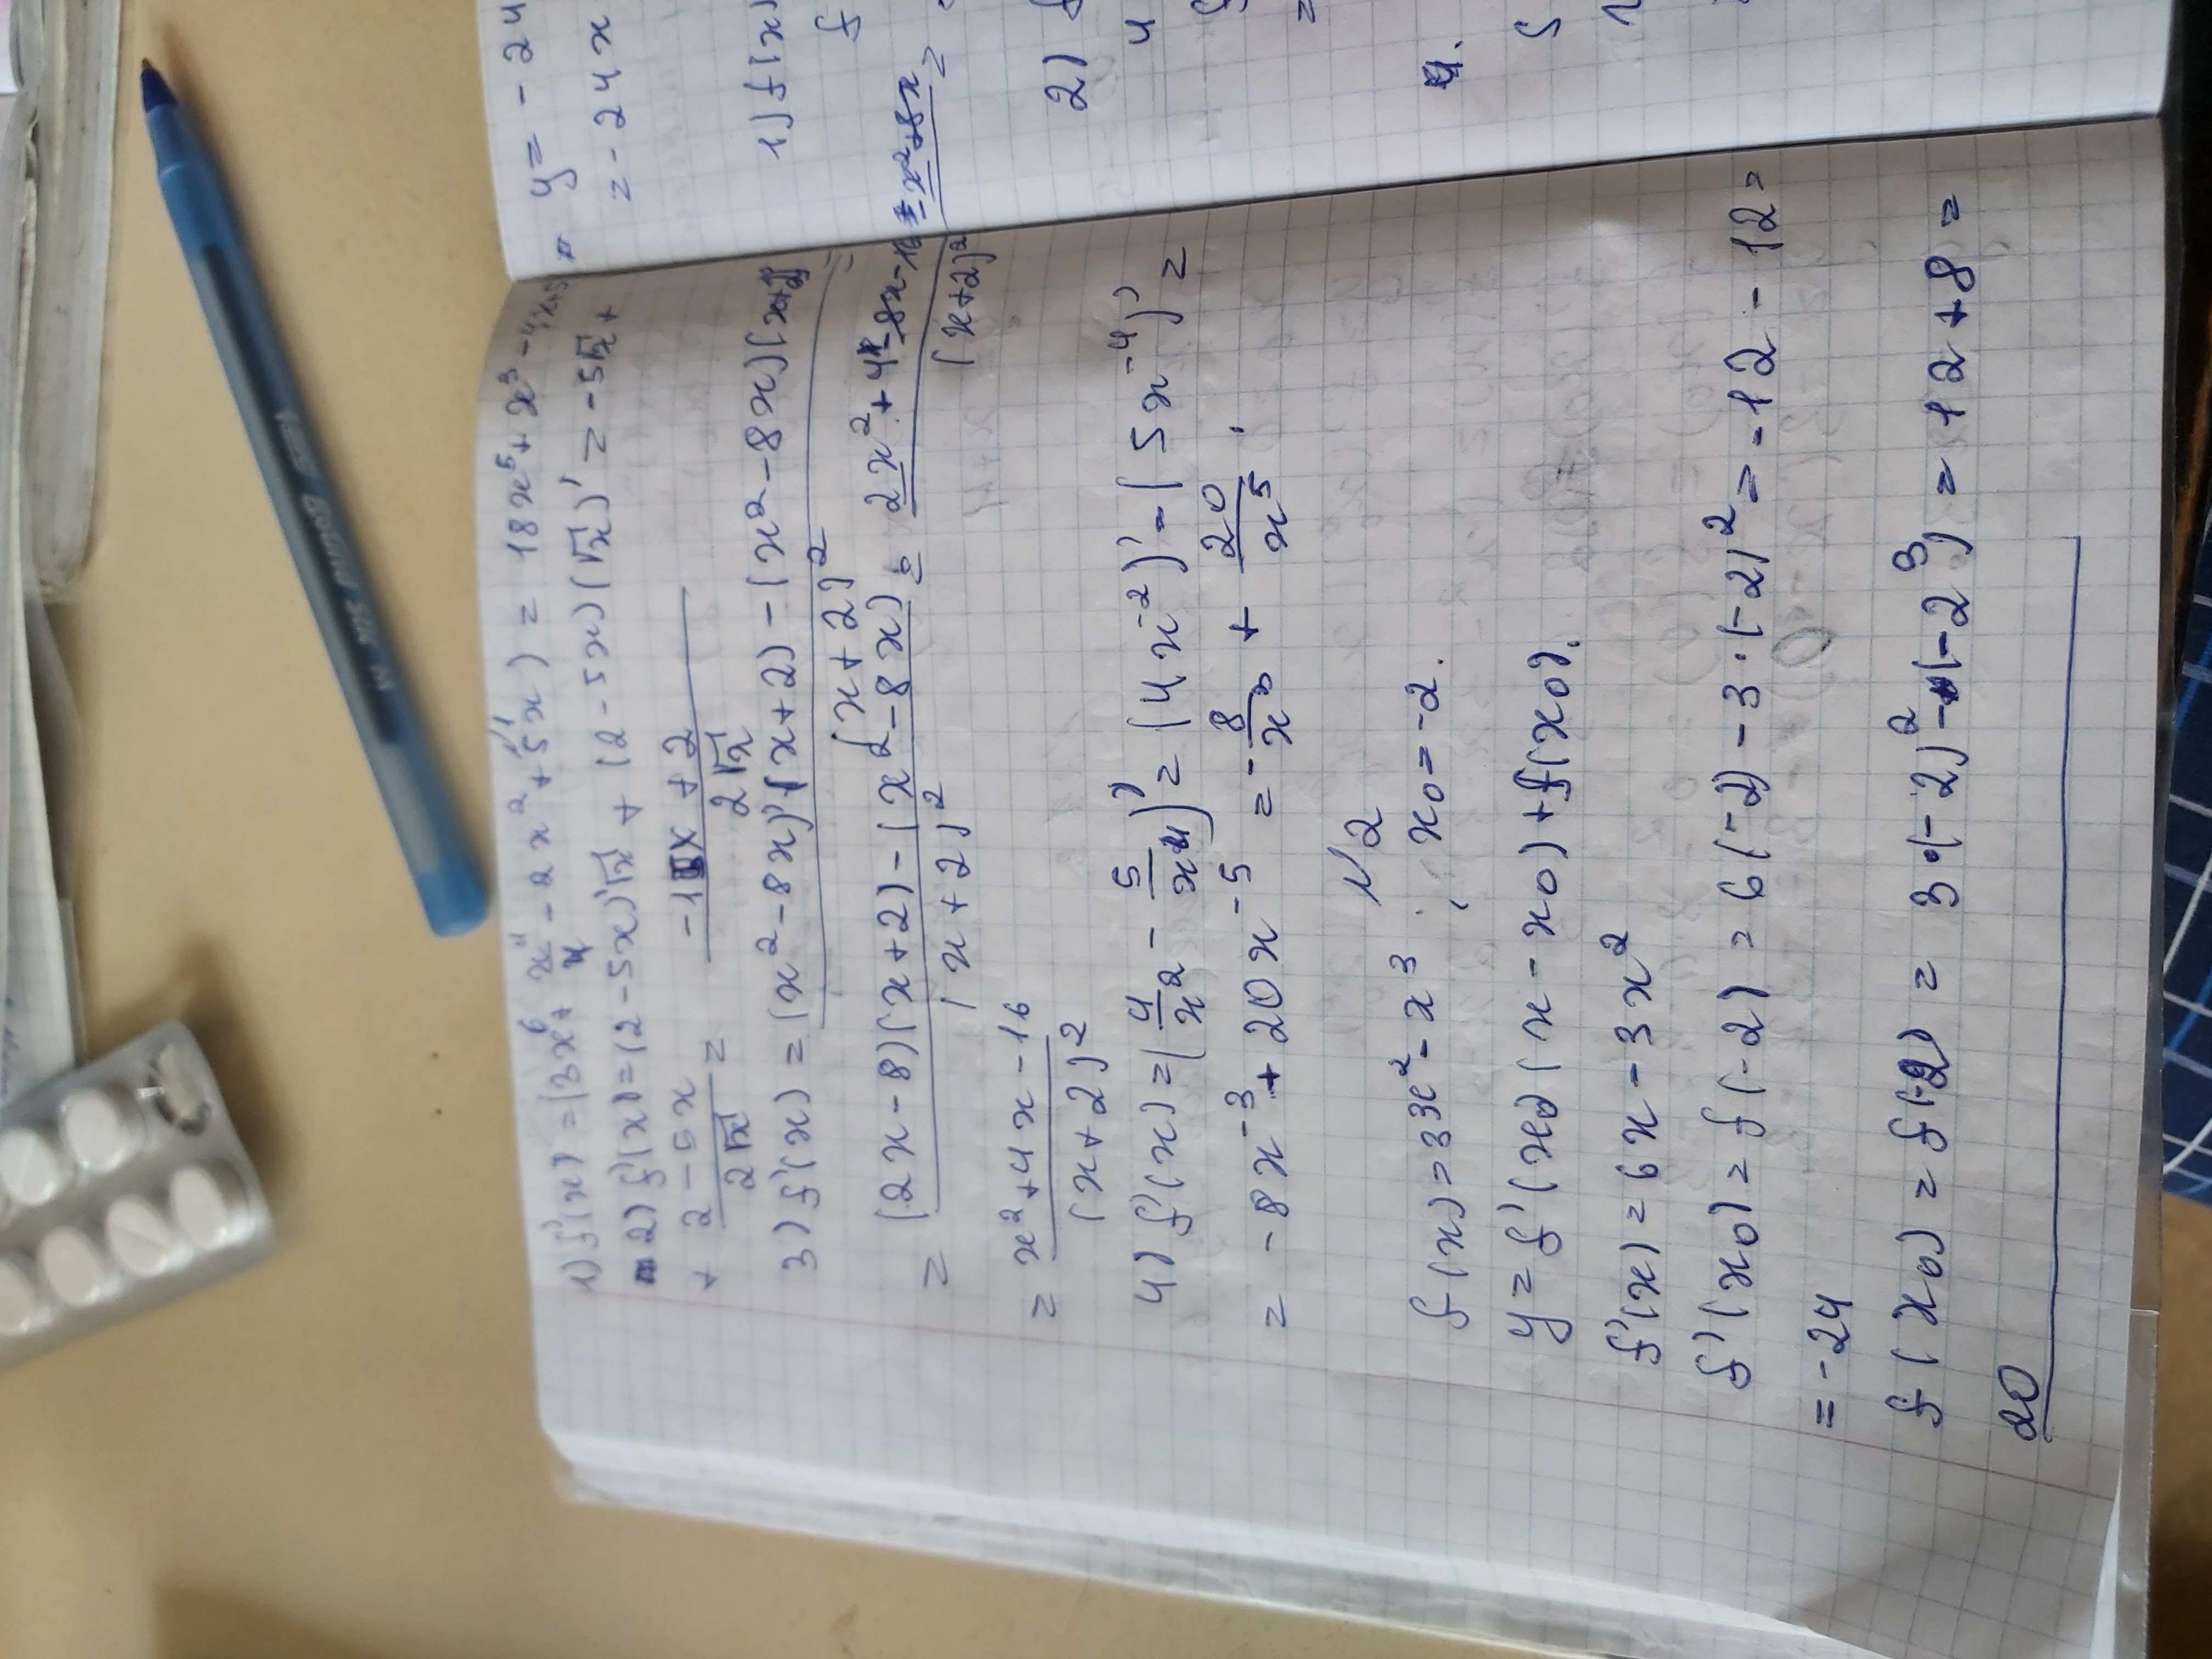 1) f'(x) = (3x⁶ + x⁴/4 - 2x² + 5x)' = 18x⁵ + x³ - 4x + 5
2) f'(x) = (2 - 5x)'√x + (2 - 5x)(√x)' = -5√x +
+ (2 - 5x)/(2√x) = (-15x + 2)/(2√x)
3) f'(x) = ((x² - 8x)'(x + 2) - (x² - 8x)(x + 2)')/(x + 2)² =
= ((2x - 8)(x + 2) - (x² - 8x))/(x + 2)² = (2x² + 4x - 8x - 16 - x² + 8x)/(x + 2)² =
= (x² + 4x - 16)/(x + 2)²
4) f'(x) = (4/x² - 5/x⁴)' = (4x⁻²)' - (5x⁻⁴)' =
= -8x⁻³ + 20x⁻⁵ = -8/x³ + 20/x⁵.
N2
f(x) = 3x² - x³ ; x₀ = -2.
y = f'(x₀)(x - x₀) + f(x₀).
f'(x) = 6x - 3x²
f'(x₀) = f(-2) = 6(-2) - 3·(-2)² = -12 - 12 =
= -24
f(x₀) = f(-2) = 3·(-2)² - (-2³) = 12 + 8 =
20
y = -24
= -24x
1) f(x)
f
2) f
4
4.